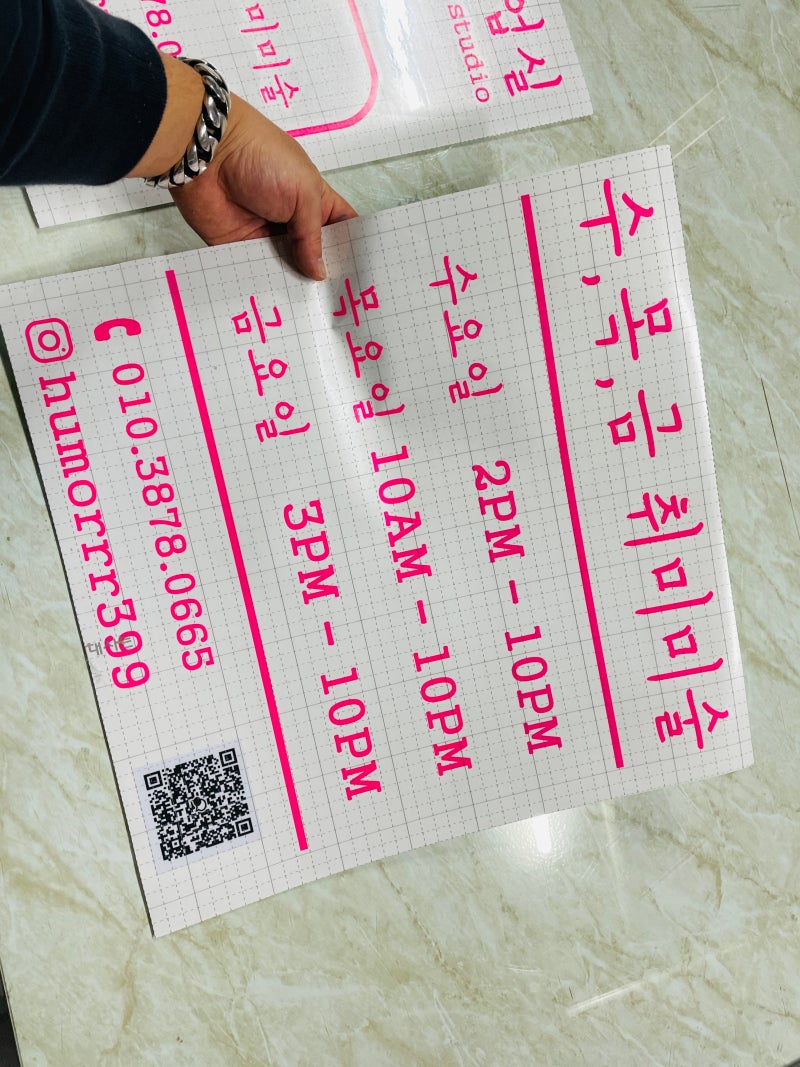 수,목,금 취미미술
수요일 2PM - 10PM
목요일 10AM - 10PM
금요일 3PM - 10PM
010.3878.0665
humorrr399
업실
studio
미미술
78.0